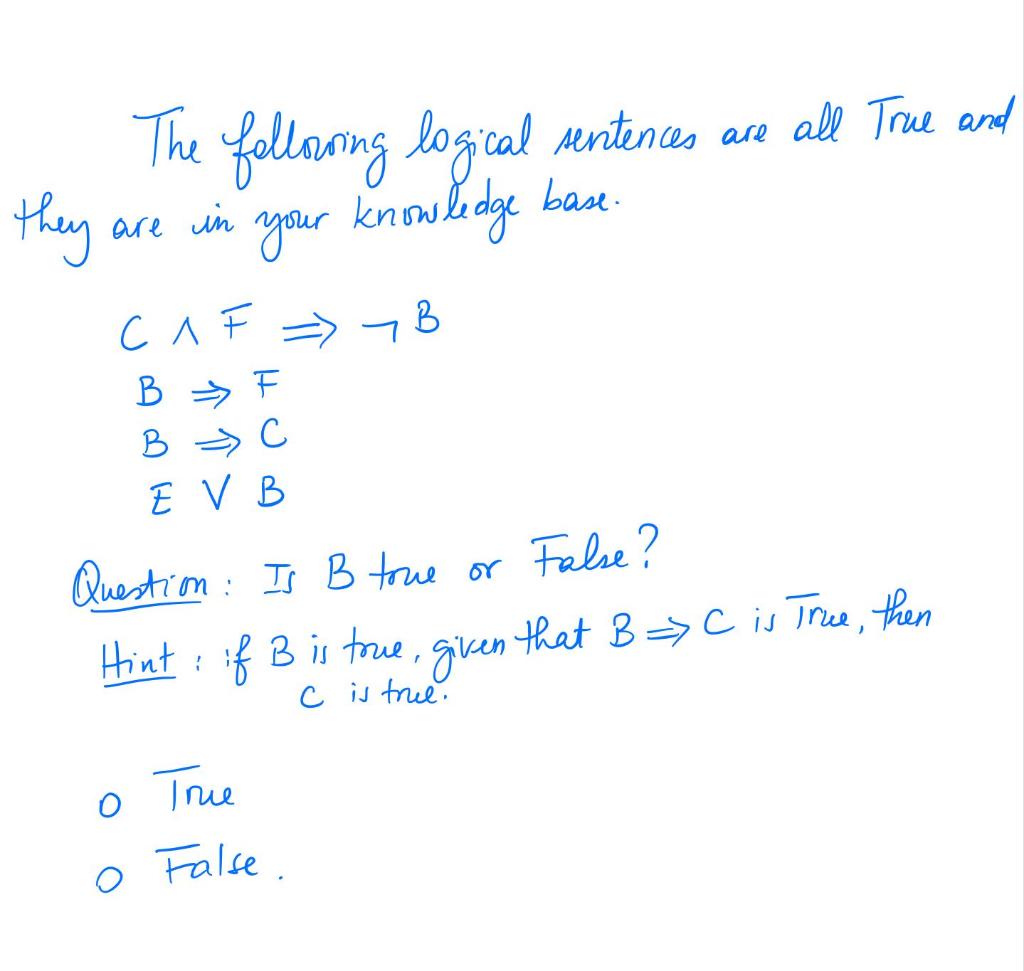 The following logical sentences are all True and
they are in your knowledge base.
C ∧ F ⇒ ¬ B
B ⇒ F
B ⇒ C
E ∨ B
Question : Is B true or False?
Hint : if B is true, given that B ⇒ C is True, then
C is true.
○ True
○ False.